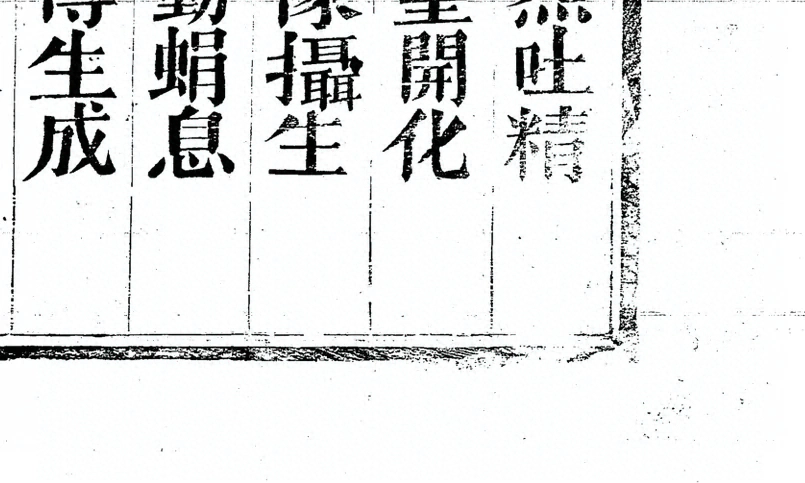 吐精
開化
攝生
動蜎息
生成